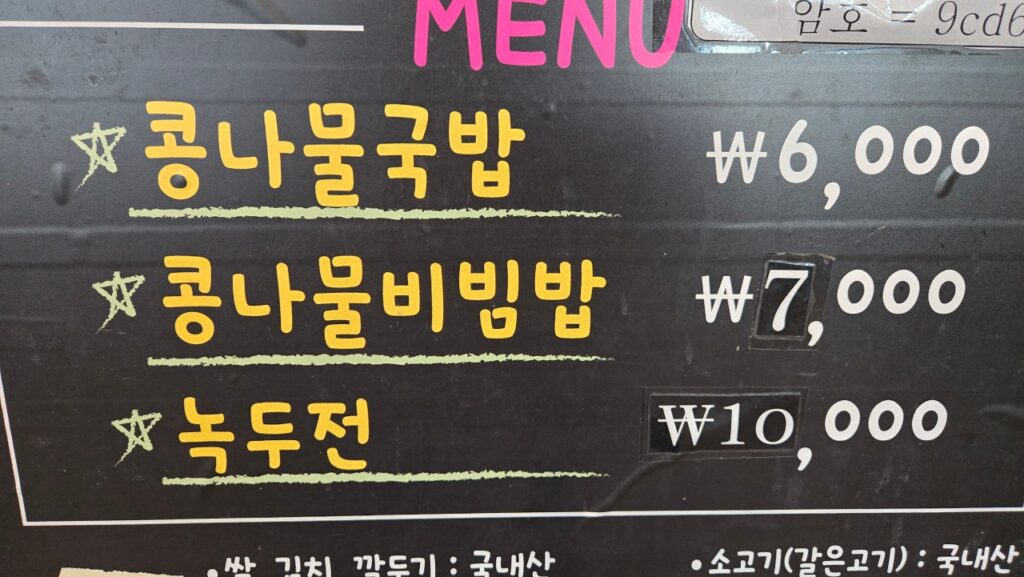 MENU
암호 = 9cd6
콩나물국밥 ₩6,000
콩나물비빔밥 ₩7,000
녹두전 ₩10,000
•쌀, 김치, 깍두기 : 국내산
•소고기(갈은고기) : 국내산